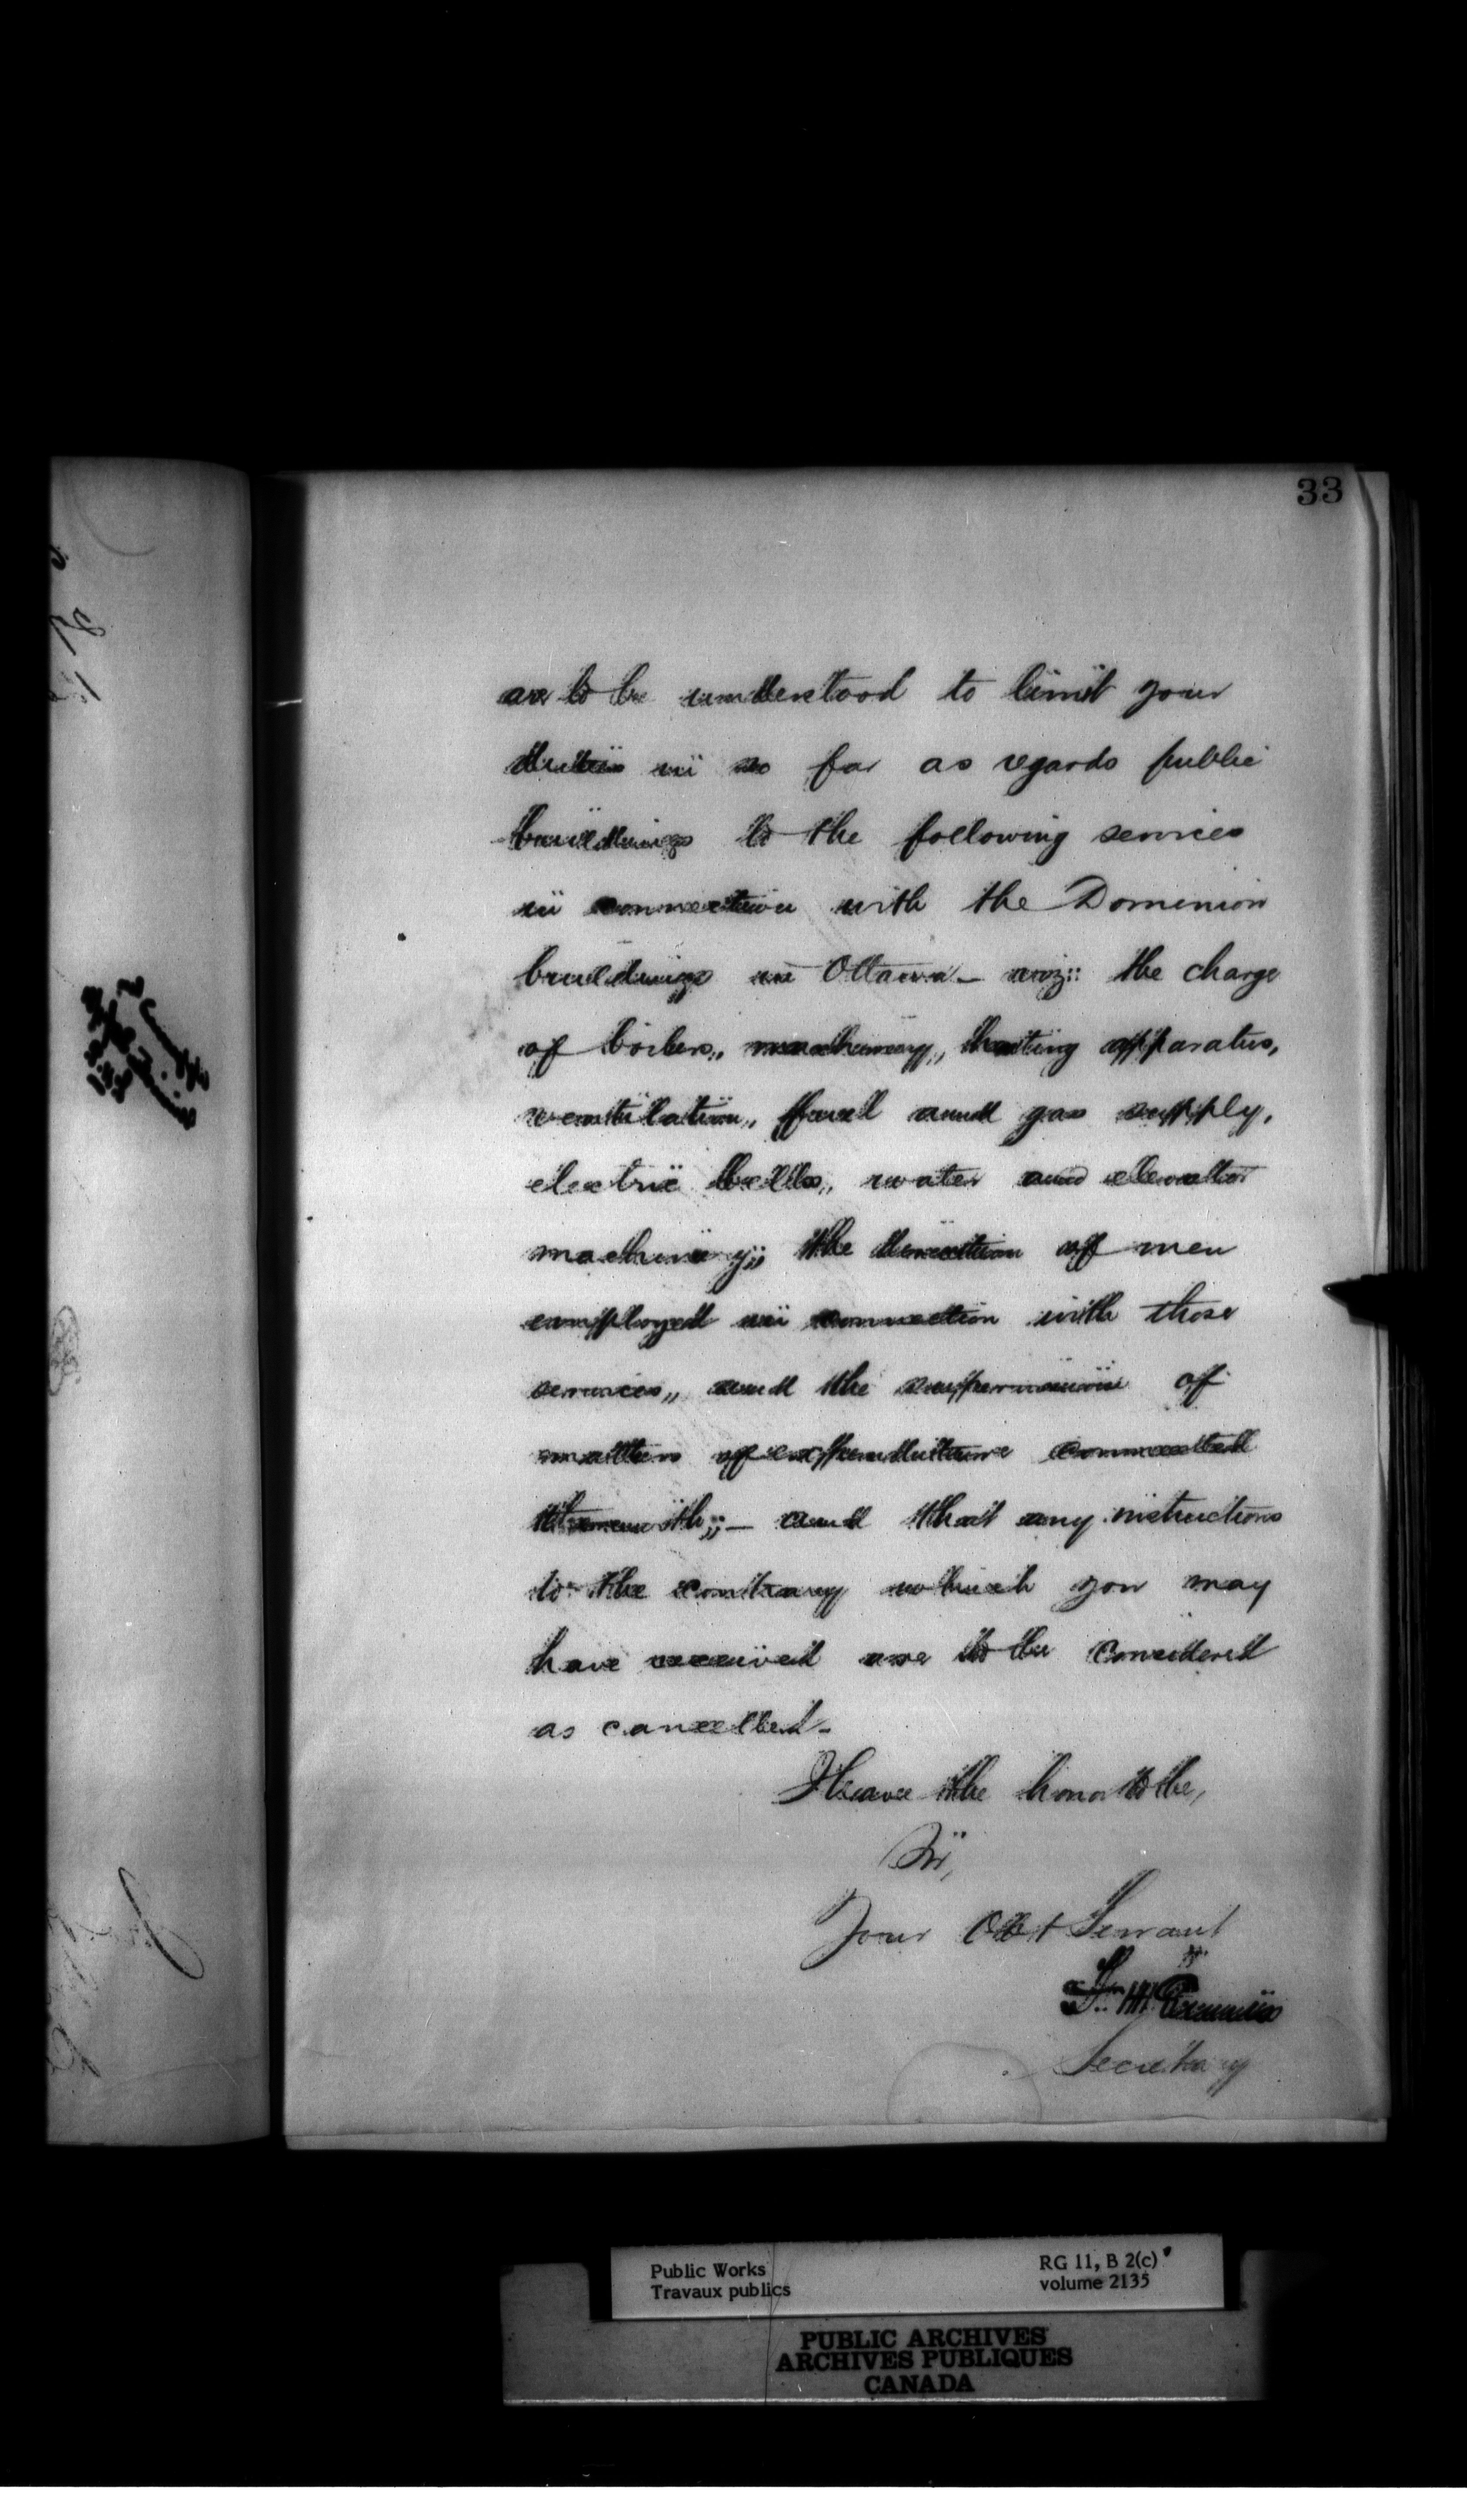 33
are to be understood to limit your
duties in so far as regards public
buildings to the following services
in connection with the Dominion
buildings in Ottawa - viz: the charge
of boilers, machinery, heating apparatus,
ventilation, fuel and gas supply,
electric bells, water and elevator
machinery; the direction of men
employed in connection with those
services, and the supervision of
matters of expenditure connected
therewith; - and that any instructions
to the contrary which you may
have received are to be considered
as cancelled -
I have the honor to be,
Sir,
Your Obt Servant
Secretary
Public Works
Travaux publics
RG 11, B 2(c)
volume 2135
PUBLIC ARCHIVES
ARCHIVES PUBLIQUES
CANADA